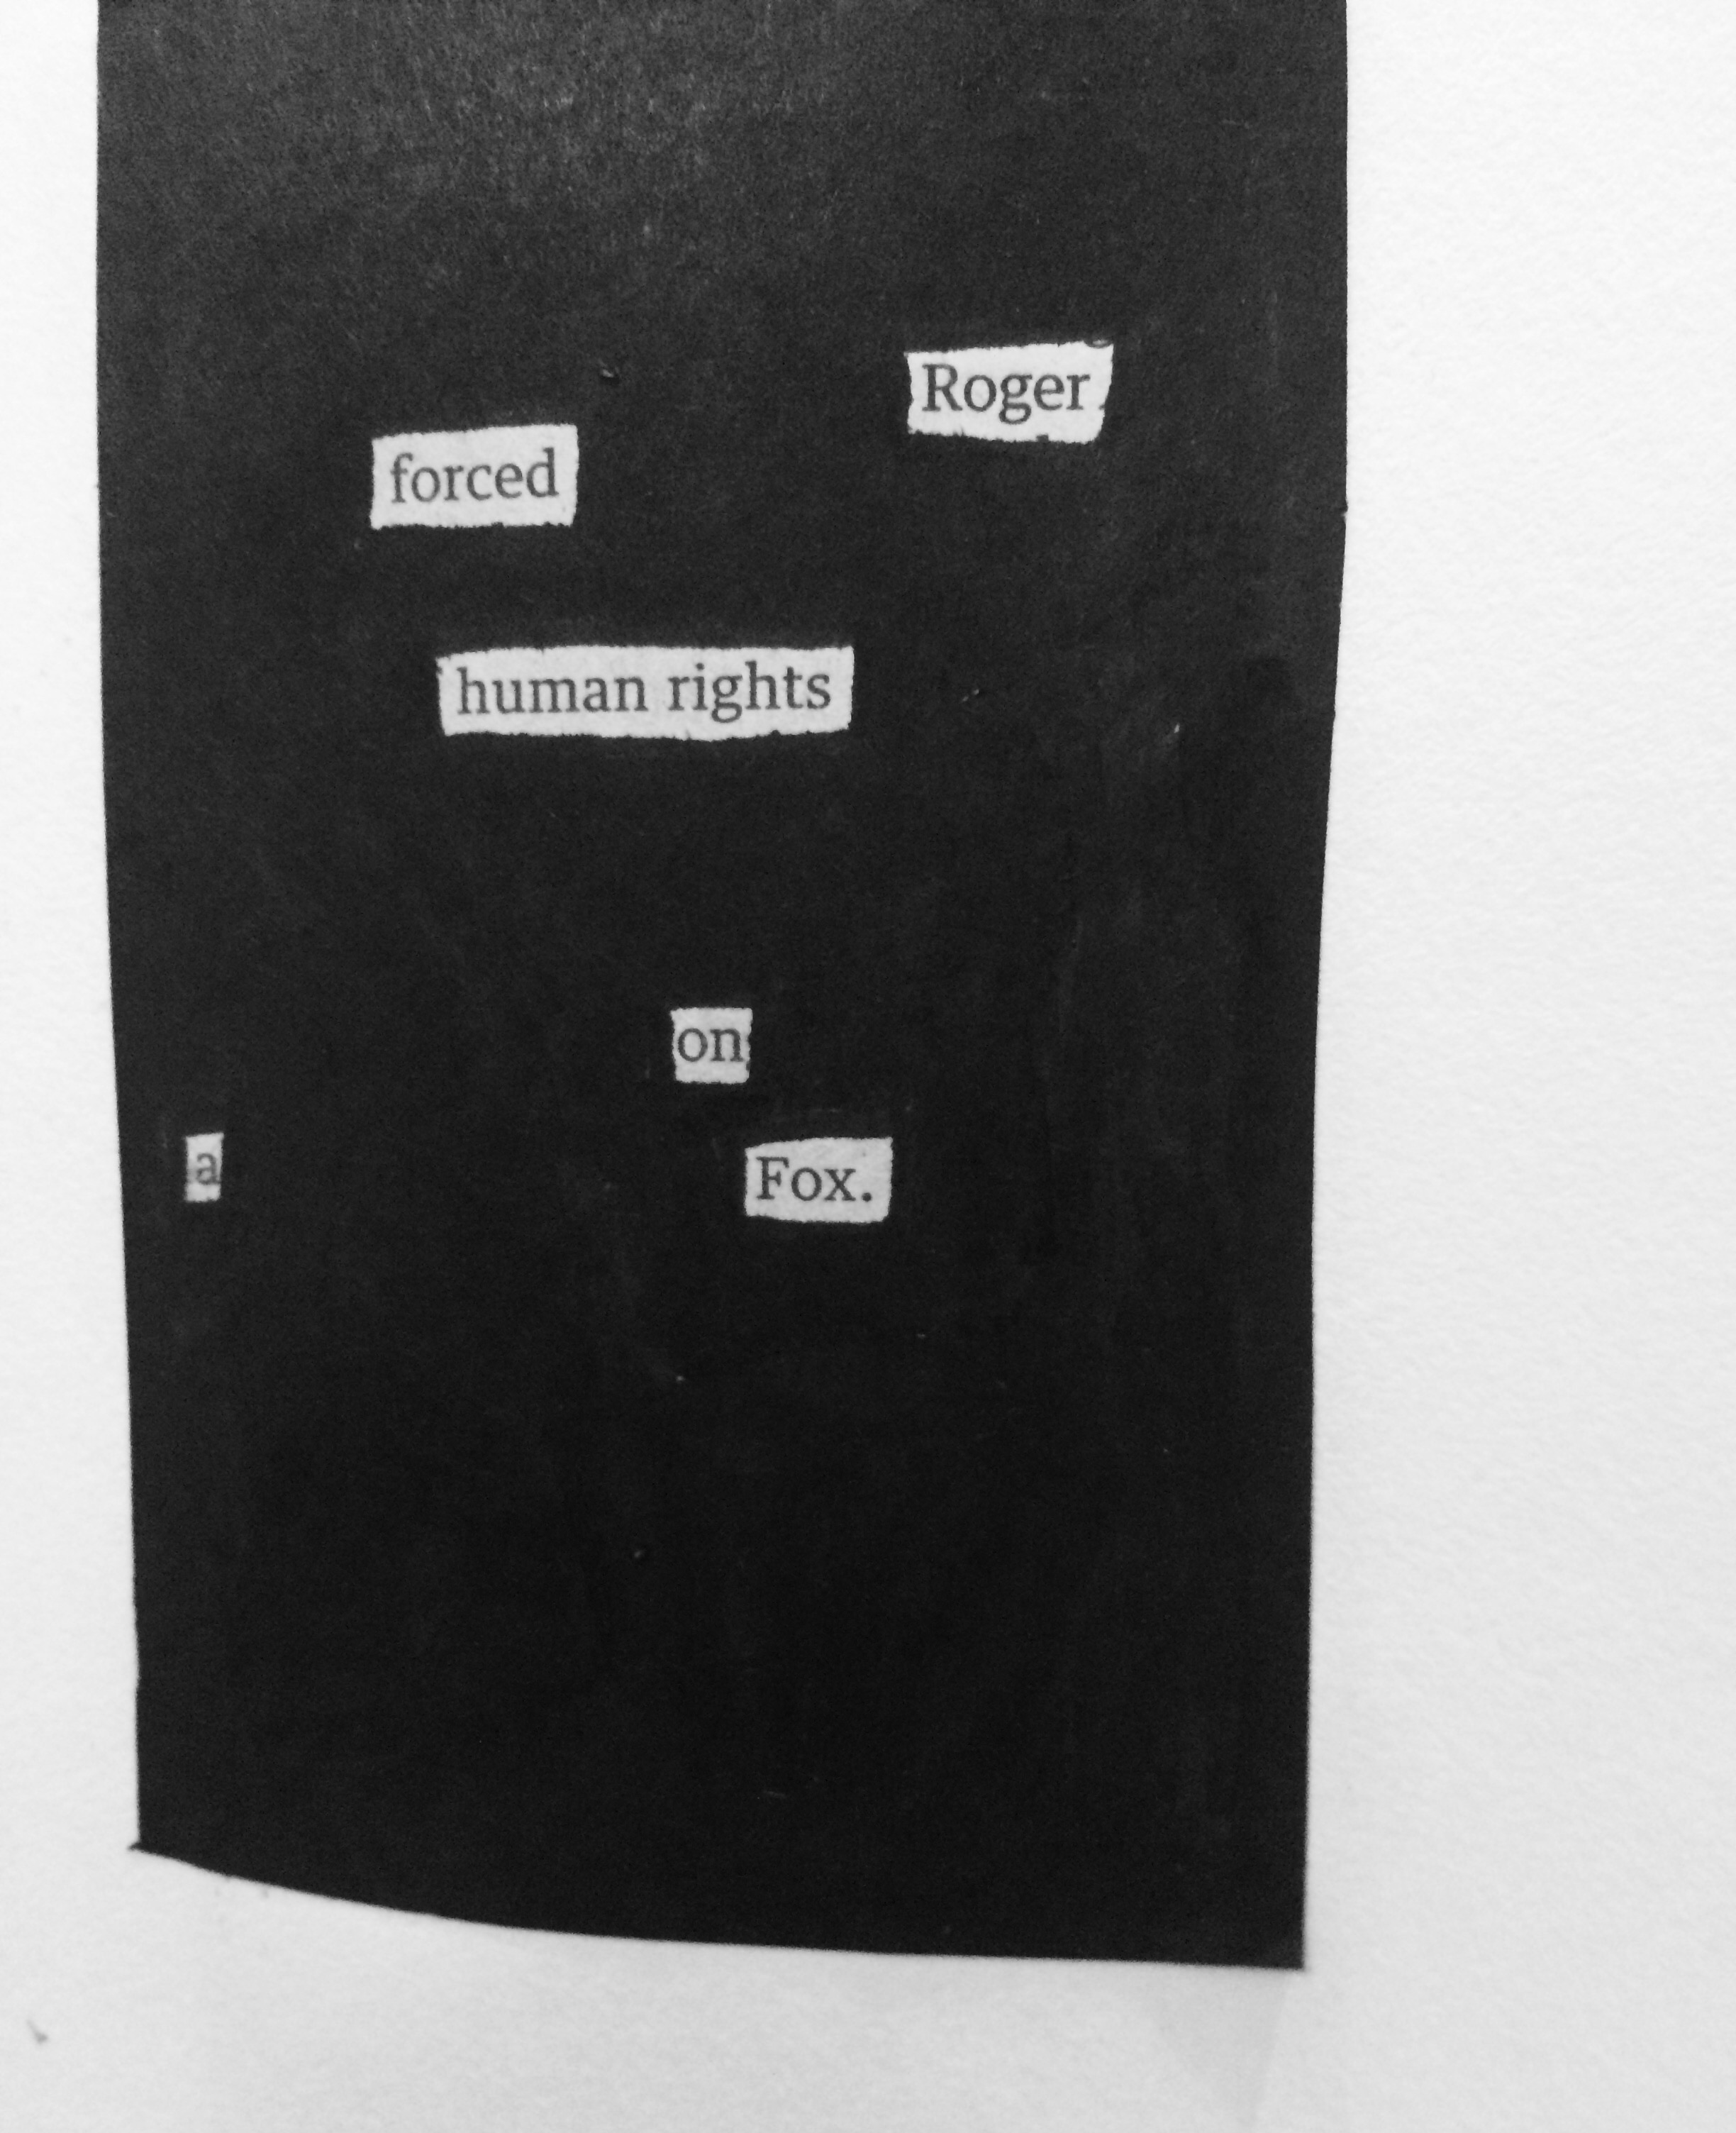 Roger
forced
human rights
on
a Fox.